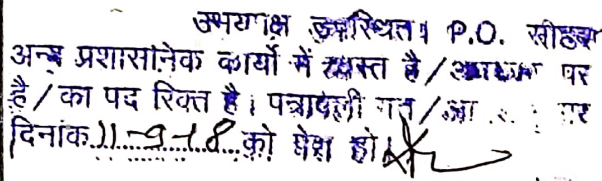 उभयपक्ष उपस्थित। P.O. सीहब
अन्य प्रशासनिक कार्यो में व्यस्त है/अवकाश पर
है/का पद रिक्त है। पत्रावली गत/आ
दिनांक 11-9-18 को पेश हो